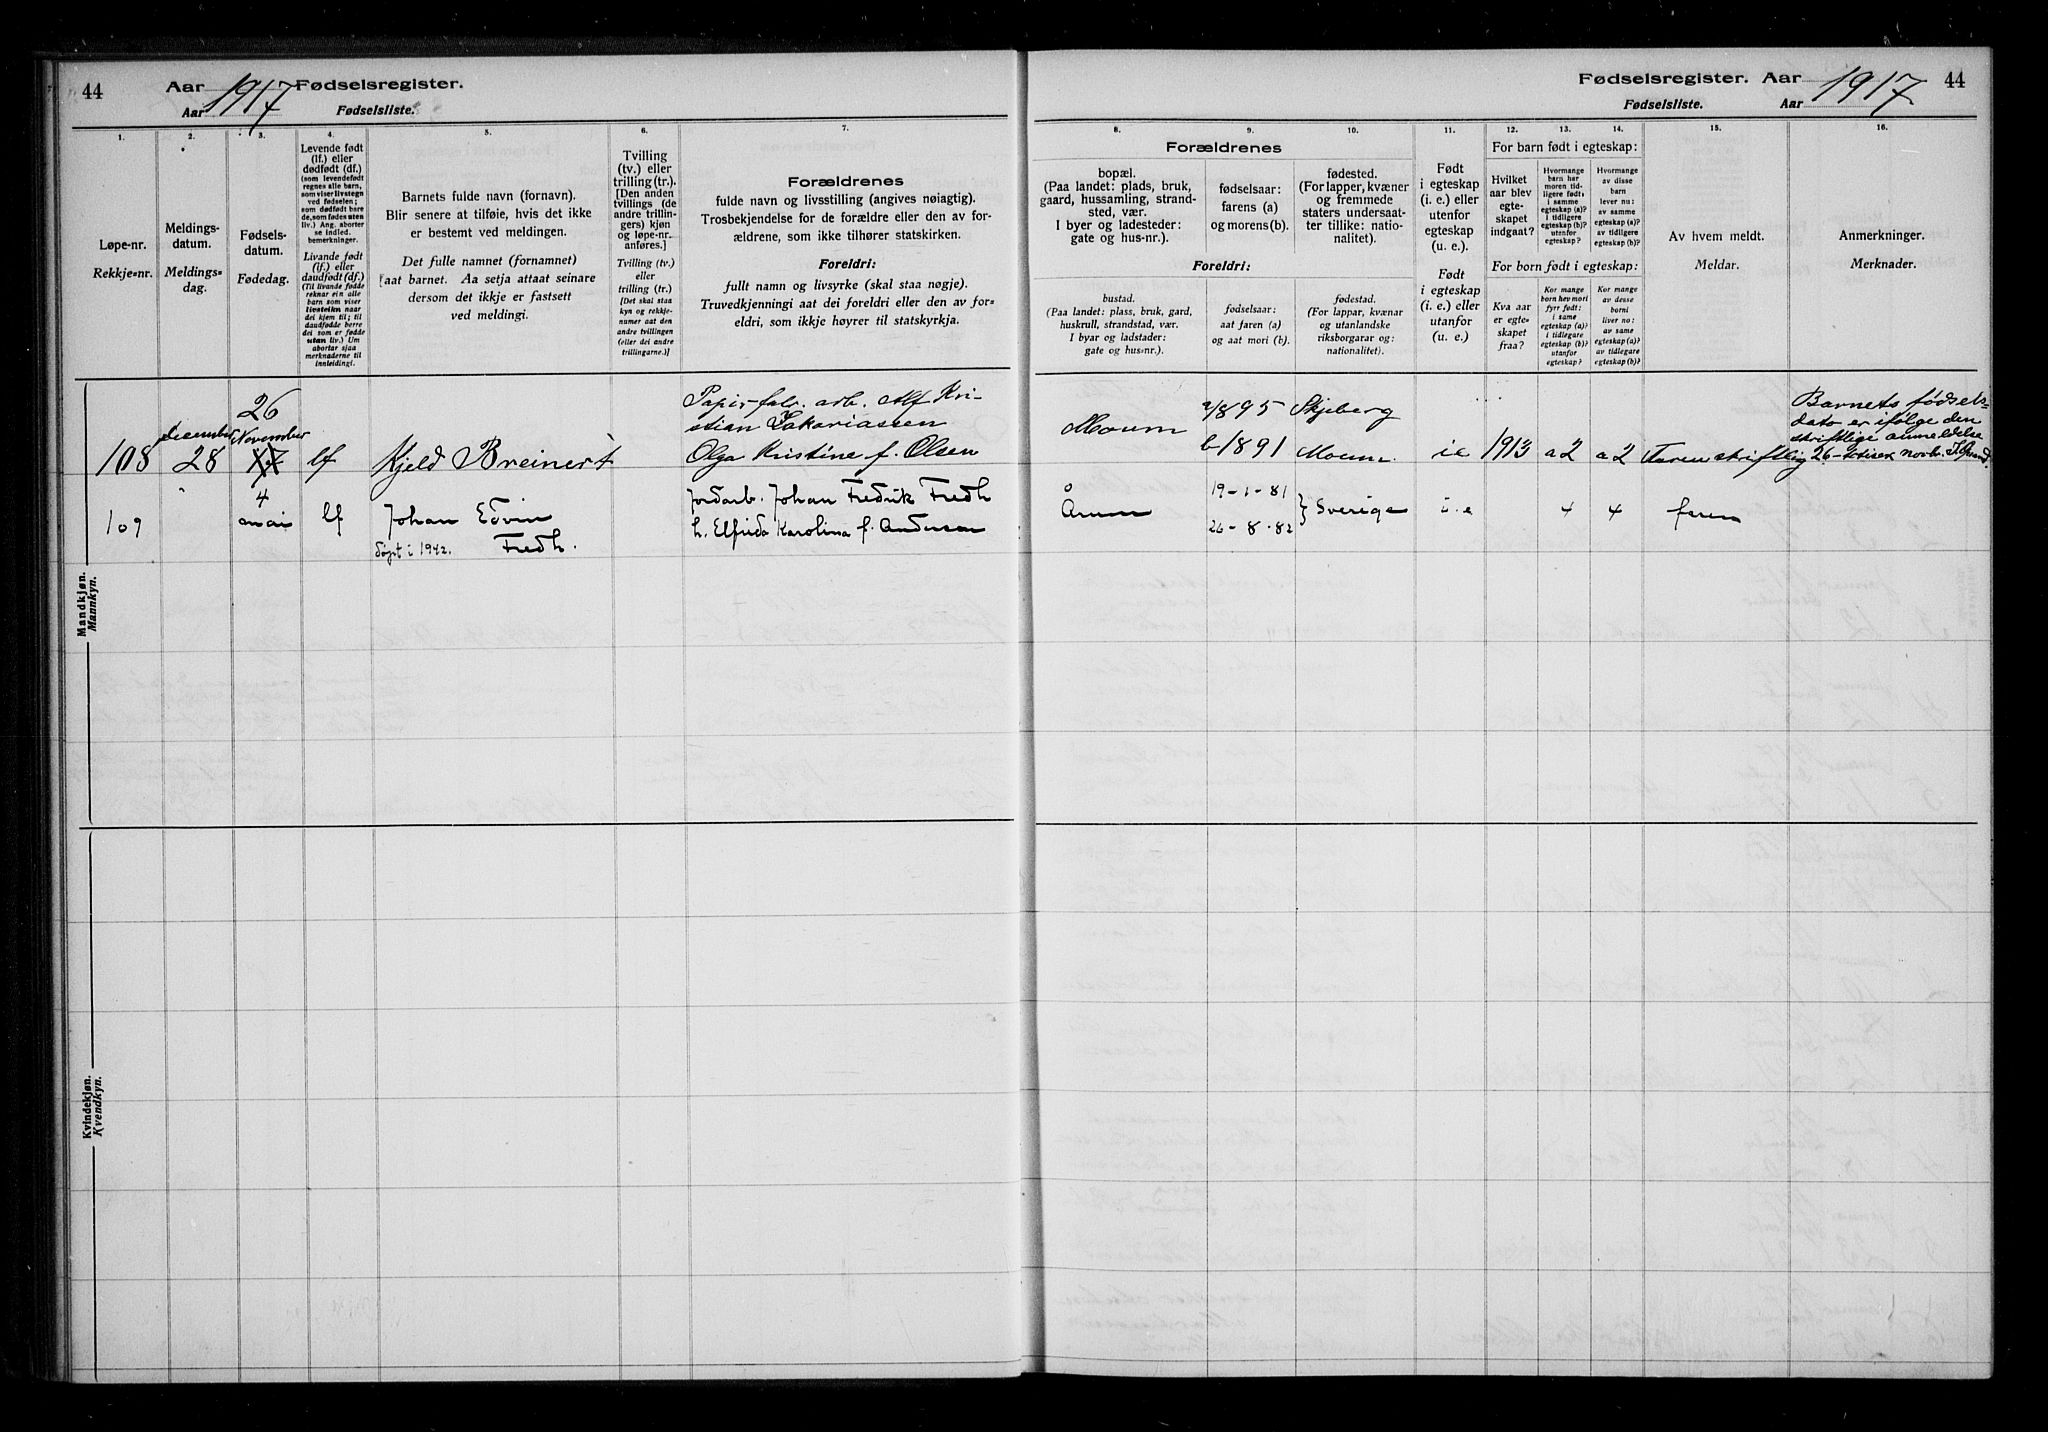 44 Aar 1917 Fødselsregister.
Aar Fødselsliste.
1. 2. 3. 4. 5. 6. 7.
Løpe-nr.
Rekkje-nr.
Meldings-
datum.
Meldings-
dag.
Fødsels-
datum.
Fødedag.
Levende født
(lf.) eller
dødfødt (df.)
(som levendefødt
regnes alle barn,
som viser livstegn
ved fødselen;
som dødfødt bare
de, som fødes uten
liv.) Ang. aborter
se indled.
bemerkninger.
Livande født
(lf.) eller
daudfødt (df.)
(Til livande fødde
reknar ein alle
barn som viser
livsteikn naar
dei kjem til; til
daudfødde berre
dei som er fødde
utan liv.) Um
abortar sjaa
merknaderne til
innleidingi.
Barnets fulde navn (fornavn).
Blir senere at tilføie, hvis det ikke
er bestemt ved meldingen.
Det fulle namnet (fornamnet)
aat barnet. Aa setja attaat seinare
dersom det ikkje er fastsett
ved meldingi.
Tvilling
(tv.) eller
trilling (tr.).
[Den anden
tvillings (de
andre trillin-
gers) kjøn
og løpe-nr.
anføres.]
Tvilling (tv.)
eller
trilling (tr.)
[Det skal staa
kyn og rekkje-
numer aat den
andre tvillingen
(eller dei andre
trillingarne.)]
Forældrenes
fulde navn og livsstilling (angives nøiagtig).
Trosbekjendelse for de forældre eller den av for-
ældrene, som ikke tilhører statskirken.
Foreldri:
fullt namn og livsyrke (skal staa nøgje).
Truvedkjenningi aat dei foreldri eller den av for-
eldri, som ikkje høyrer til statskyrkja.
Mandkjøn.
Mannkyn.
108 december 28 26 November lf Kjeld Breinert
Papirfabr. arb. Alf Kri-
stian Zakariassen
Olga Kristine f. Olsen
109 " 4 mai lf Johan Edvin
Fredh.
døpt i 1942.
Jordarb. Johan Fredrik Fredh
h. Elfrida Karolina f. Anderson
Kvindekjøn.
Kvendkyn.
Fødselsregister. Aar 1917 44
Fødselsliste. Aar
8. 9. 10. 11. 12. 13. 14. 15. 16.
Forældrenes
bopæl.
(Paa landet: plads, bruk,
gaard, hussamling, strand-
sted, vær.
I byer og ladesteder:
gate og hus-nr.).
fødselsaar:
farens (a)
og morens (b).
fødested.
(For lapper, kvæner
og fremmede
staters undersaat-
ter tillike: natio-
nalitet).
Foreldri:
bustad.
(Paa landet: plass, bruk, gard,
huskrull, strandstad, vær.
I byar og ladstader:
gate og hus-nr.).
fødselsaar:
aat faren (a)
og aat mori (b).
fødestad.
(For lappar, kvænar
og utanlandske
riksborgarar og:
nationalitet).
Født
i egteskap
(i. e.) eller
utenfor
egteskap
(u. e.).
Født
i egteskap
(i. e.) eller
utanfor
(u. e.)
For barn født i egteskap:
Hvilket
aar blev
egte-
skapet
indgaat?
Hvormange
barn har
moren tid-
ligere født:
i samme
egteskap (a)?
i tidligere
egteskap (b)?
utenfor
egteskap?
Hvormange
av disse
barn
lever nu:
av samme
egteskap (a)?
av tidligere
egteskap (b)?
For born født i egteskap:
Kva aar
er egte-
skapet
fraa?
Kor mange
born hev mori
fyrr født:
i same
egteskap (a)?
i tidlegare
egteskap (b)?
utanfor
egteskap?
Kor mange
av desse
borni
liver no:
av same
egteskap (a)?
av tidlegare
egteskap (b)?
Av hvem meldt.
Meldar.
Anmerkninger.
Merknader.
Moum a/895 Skjeberg
b/1891 Moum. i e 1913 a 2 a 2 Faren skriftlig
Barnets fødsels-
dato er ifølge den
skriftlige anmeldelse
26- novbr.
Årum 19-1-81
26-8-82 } Sverige i. e 4 4 faren